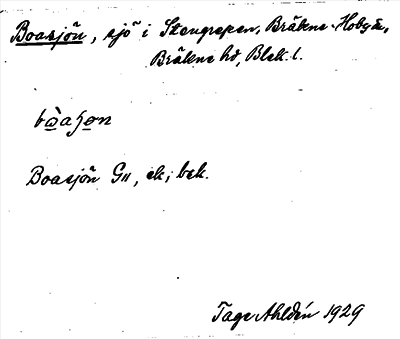 Boasjön, sjö i Stengrepen, Bräkne-Hoby sn,
Bräkne hd, Blek. l.
Boasjön G11, ek; bek.
Tage Ahldén 1929